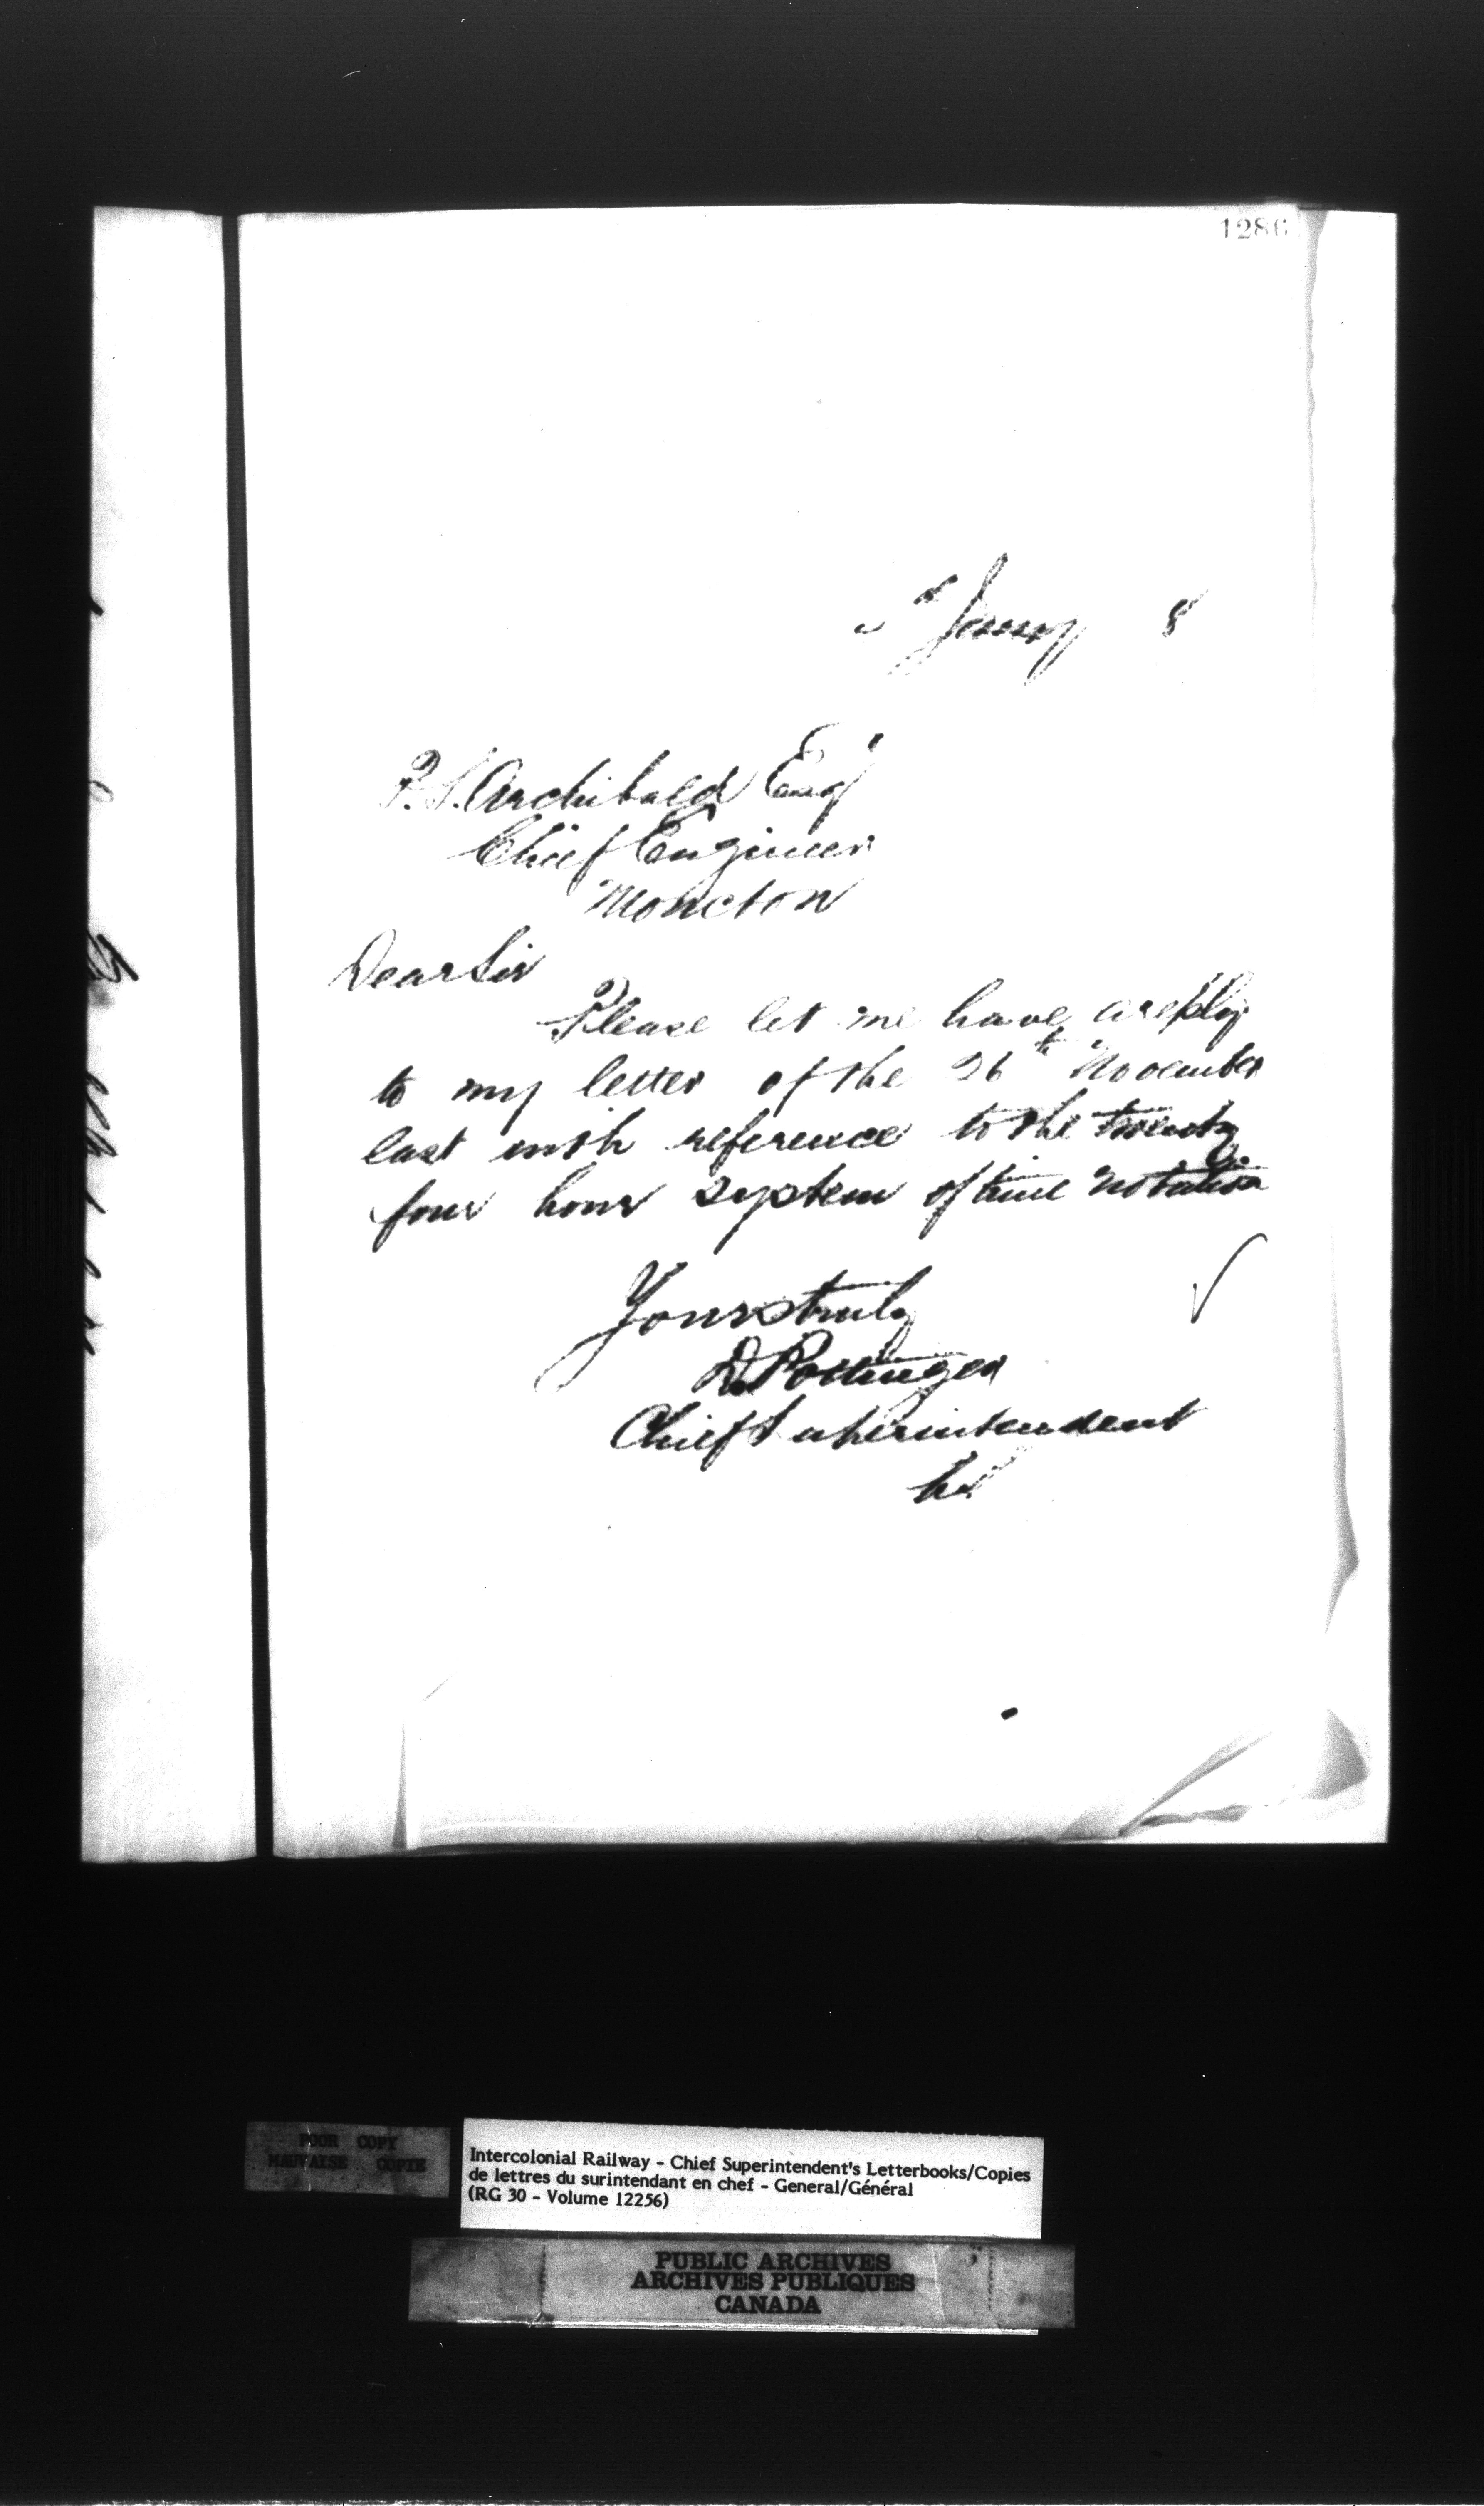 1286
Jany 8
P.S. Archibald Esq
Chief Engineer
Moncton
Dear Sir
Please let me have a reply
to my letter of the 26th November
last with reference to the twenty
four hour system of time notation
Yours truly
D. Pottinger
Chief Superintendent
POOR COPY
MAUVAISE COPIE
Intercolonial Railway - Chief Superintendent's Letterbooks/Copies
de lettres du surintendant en chef - General/Général
(RG 30 - Volume 12256)
PUBLIC ARCHIVES
ARCHIVES PUBLIQUES
CANADA